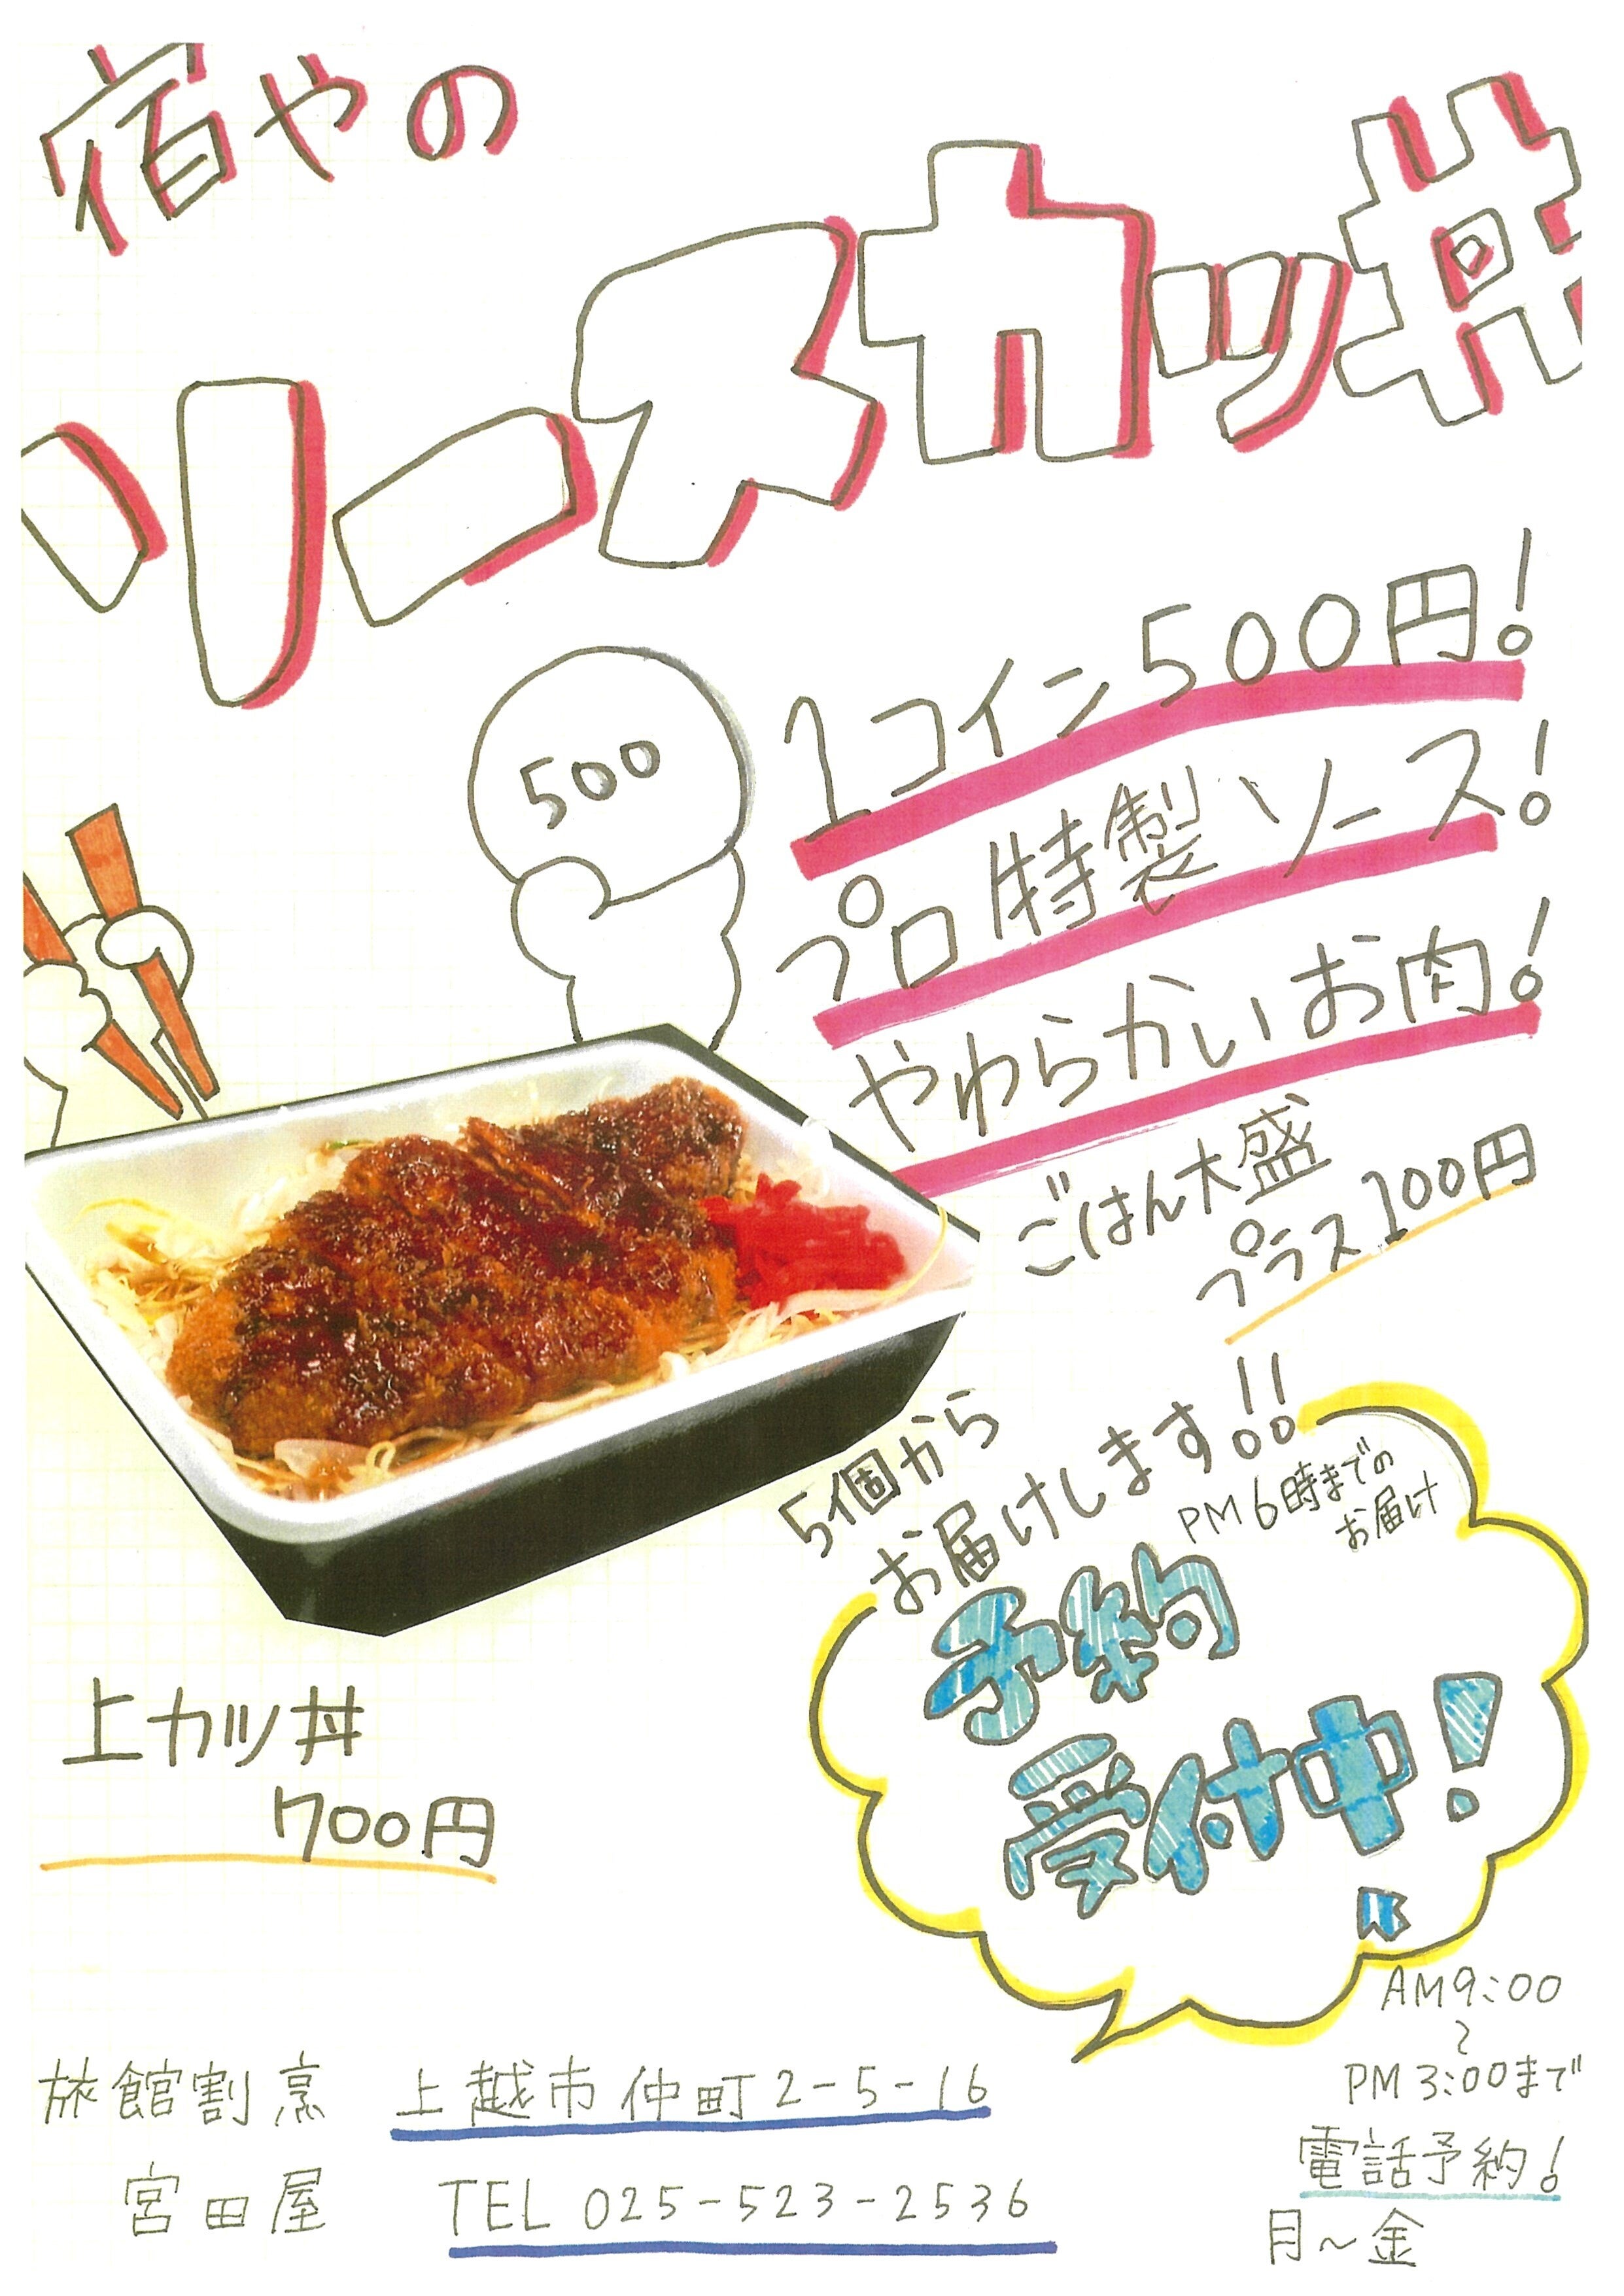 宿やの
ソースカツ丼
500
1コイン500円!
プロ特製ソース!
やわらかいお肉!
ごはん大盛
プラス100円
5個から
お届けします!!
PM6時までの
お届け
予約
受付中!
上カツ丼
700円
AM9:00
~
PM3:00まで
電話予約!
月~金
旅館割烹 上越市仲町2-5-16
宮田屋 TEL 025-523-2536